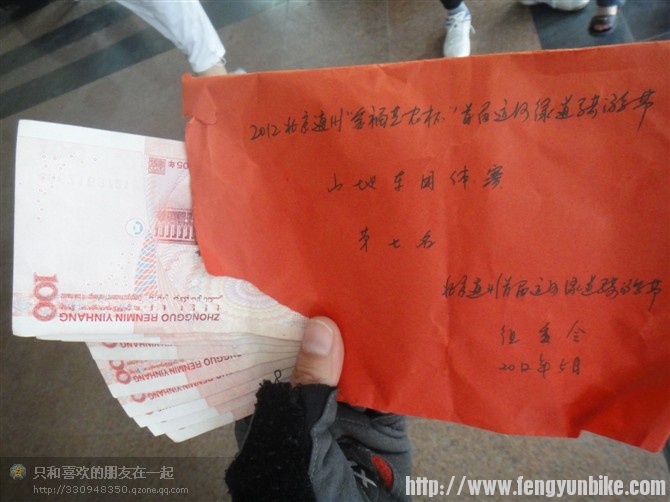 2012北京通州"幸福芝农杯"首届运河绿道骑游节
山地车团体赛
第七名
北京通州首届运河绿道骑游节
组委会
2012年5月
05年
100
ZHONGGUO RENMIN YINHANG
ZHONGGUO RENMIN YINHANG
RENMIN YINHANG
只和喜欢的朋友在一起
http://330948350.qzone.qq.com
http://www.fengyunbike.com